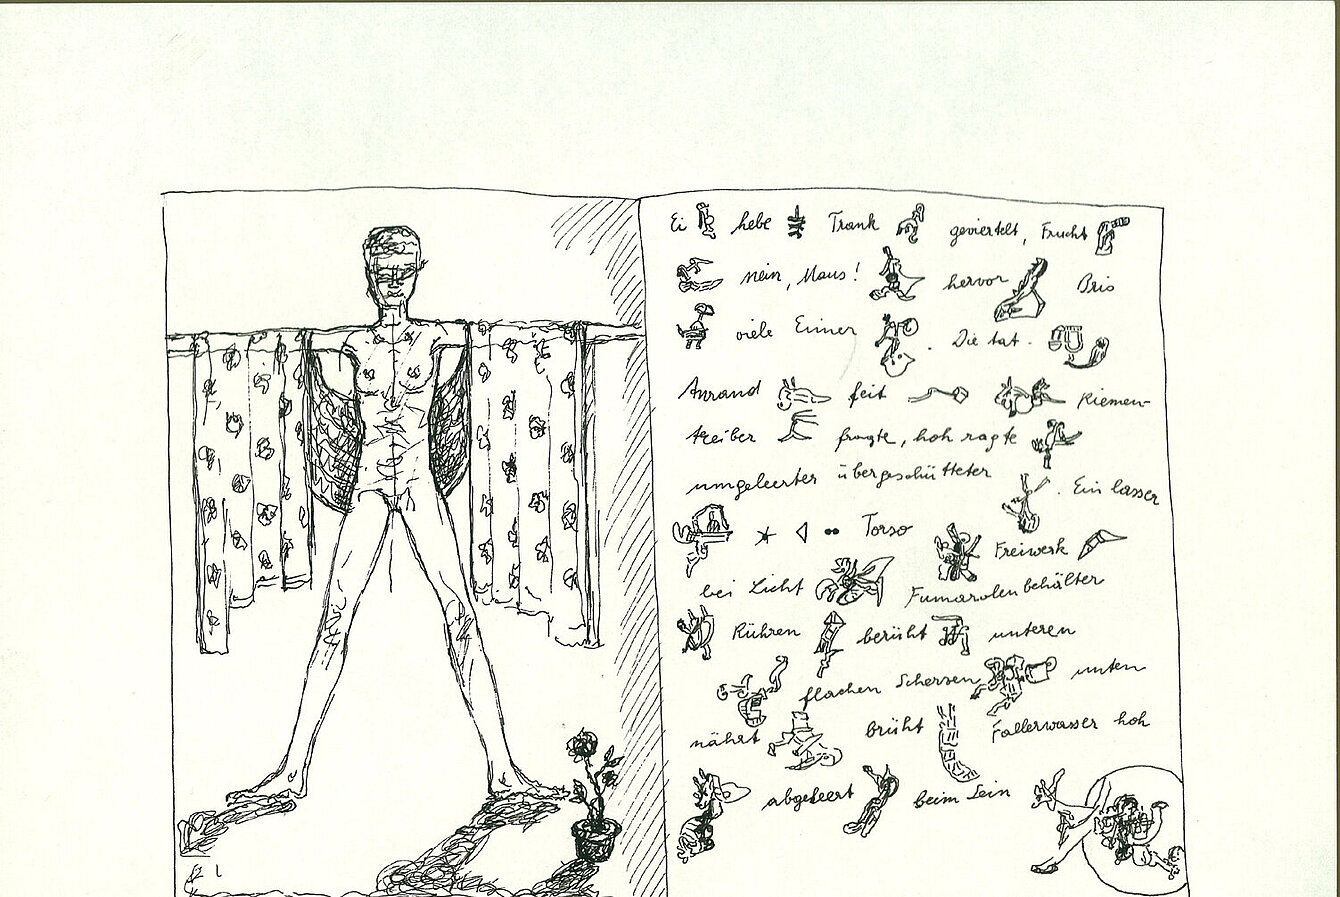 Ei hebe Trank geviertelt, Frucht
nein, Maus! hervor Bris
viele Eimer . Die tat .
Anrand feit Riemen-
treiber fragte, hoh ragte
umgeleerter übergeschütteter
. Ein lasser
Torso Freiwerk
bei Licht Fumarolenbehälter
Rühren berüht unteren
flachen Scherzen unten
nährt brüht Fallerwasser hoh
abgeleert beim Sein